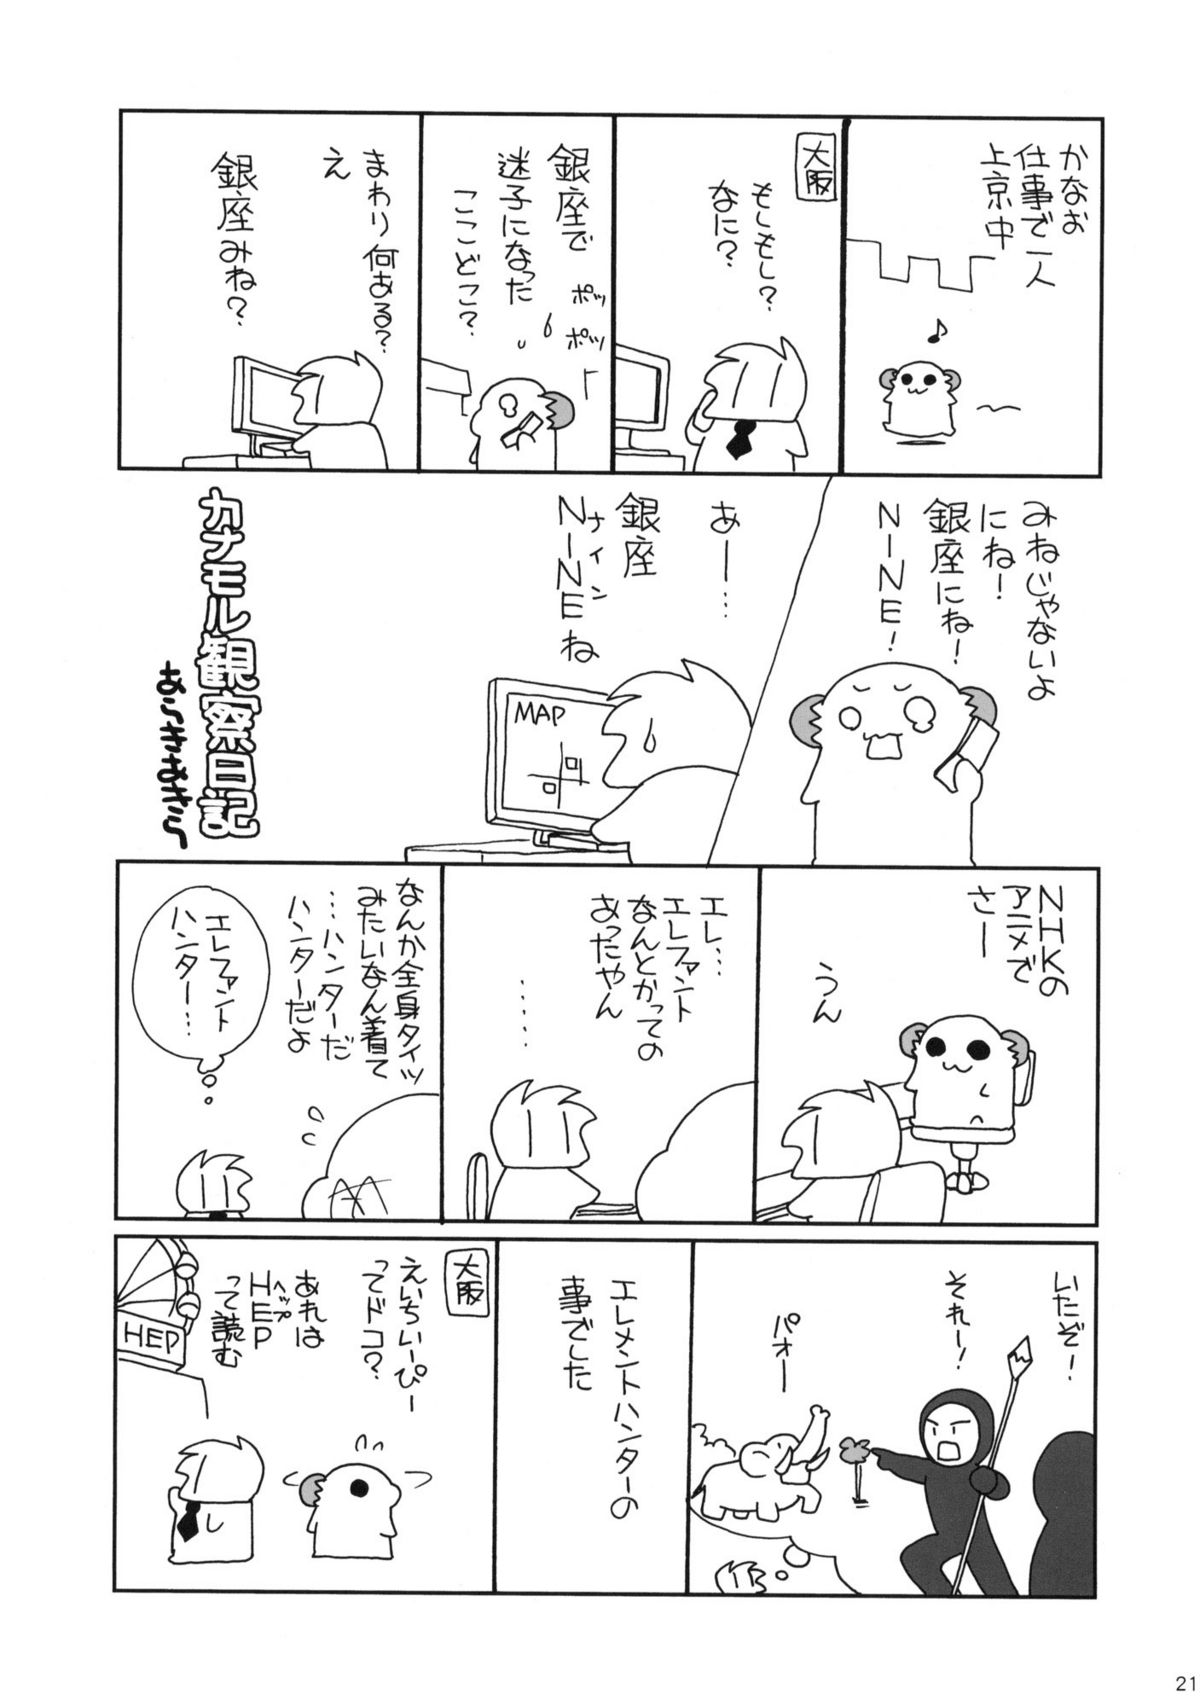 かなお
仕事で一人
上京中
大阪
もしもし?
なに?
銀座で
迷子になった
ここどこ?
ポッ
ポッ
まわり何ある?
え
銀座みね?
みねじゃないよ
にね!
銀座にね!
NINE!
あー…
銀座
NINEね
ナイン
MAP
カナモル観察日記
あらきあきら
NHKの
アニメで
さー
うん
エレ…
エレファント
なんとかっての
あったやん
……
なんか全身タイツ
みたいなん着て
…ハンターだ
ハンターだよ
エレファント
ハンター…
いたぞ!
それー!
パオー
エレメントハンターの
事でした
大阪
えいちいーぴー
ってドコ?
あれは
HEP
ヘップ
って読む
HEP
21